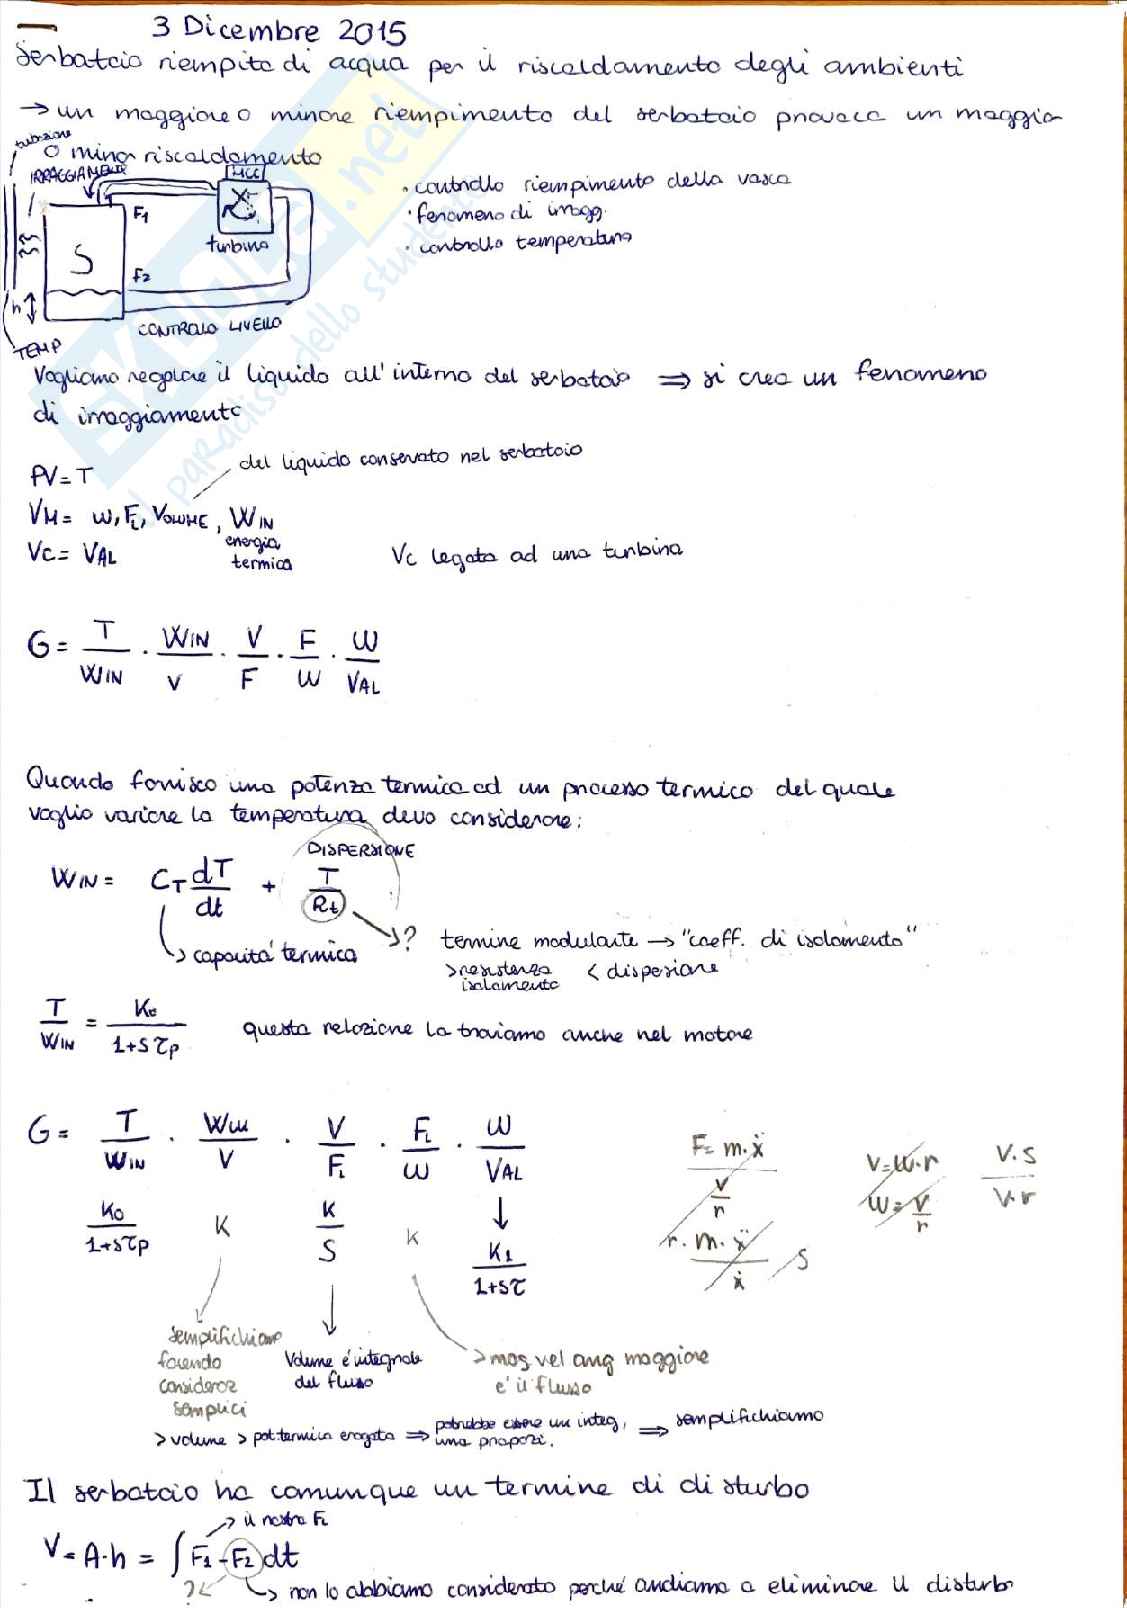 3 Dicembre 2015
Serbatoio riempito di acqua per il riscaldamento degli ambienti
→ un maggiore o minore riempimento del serbatoio provoca un maggior
o minor riscaldamento
tubazione
IRRAGGIAMENTO
MCC
F1
S
F2
h
turbina
CONTROLO LIVELLO
TEMP
· controllo riempimento della vasca
· fenomeno di irragg.
· controllo temperatura
Vogliamo regolare il liquido all'interno del serbatoio ⇒ si crea un fenomeno
di irraggiamento
PV = T
del liquido conservato nel serbatoio
VM = ω, Fi, VOLUME, WIN
energia
termica
VC = VAL
Vc legata ad una turbina
G = T/WIN · WIN/V · V/F · F/ω · ω/VAL
Quando fornisco una potenza termica ad un processo termico del quale
voglio variare la temperatura devo considerare:
DISPERSIONE
WIN = CT dT/dt + T/Rt
→ capacità termica
→? termine modulante → "coeff. di isolamento"
> resistenza < dispersione
isolamento
T/WIN = K0/1+sτp questa relazione la troviamo anche nel motore
G = T/WIN · WIN/V · V/Fi · Fi/ω · ω/VAL
K0/1+sτp K K/S K K1/1+sτ
F = m·ẍ
v/r
r·m·ẍ/ẋ /s
V=ω·r
ω=V/r
V·s/V·r
semplifichiamo
facendo
consideraz
semplici
Volume é integrale
del flusso
> mag vel ang maggiore
e' il flusso
> volume > pot termica erogata ⇒ potrebbe essere un integ, una proporz. ⇒ semplifichiamo
Il serbatoio ha comunque un termine di disturbo
→ il nostro Fi
V = A·h = ∫ F1 - F2 dt
?
→ non lo abbiamo considerato perché andiamo a eliminare il disturbo
skuola.net
il paradiso dello studente